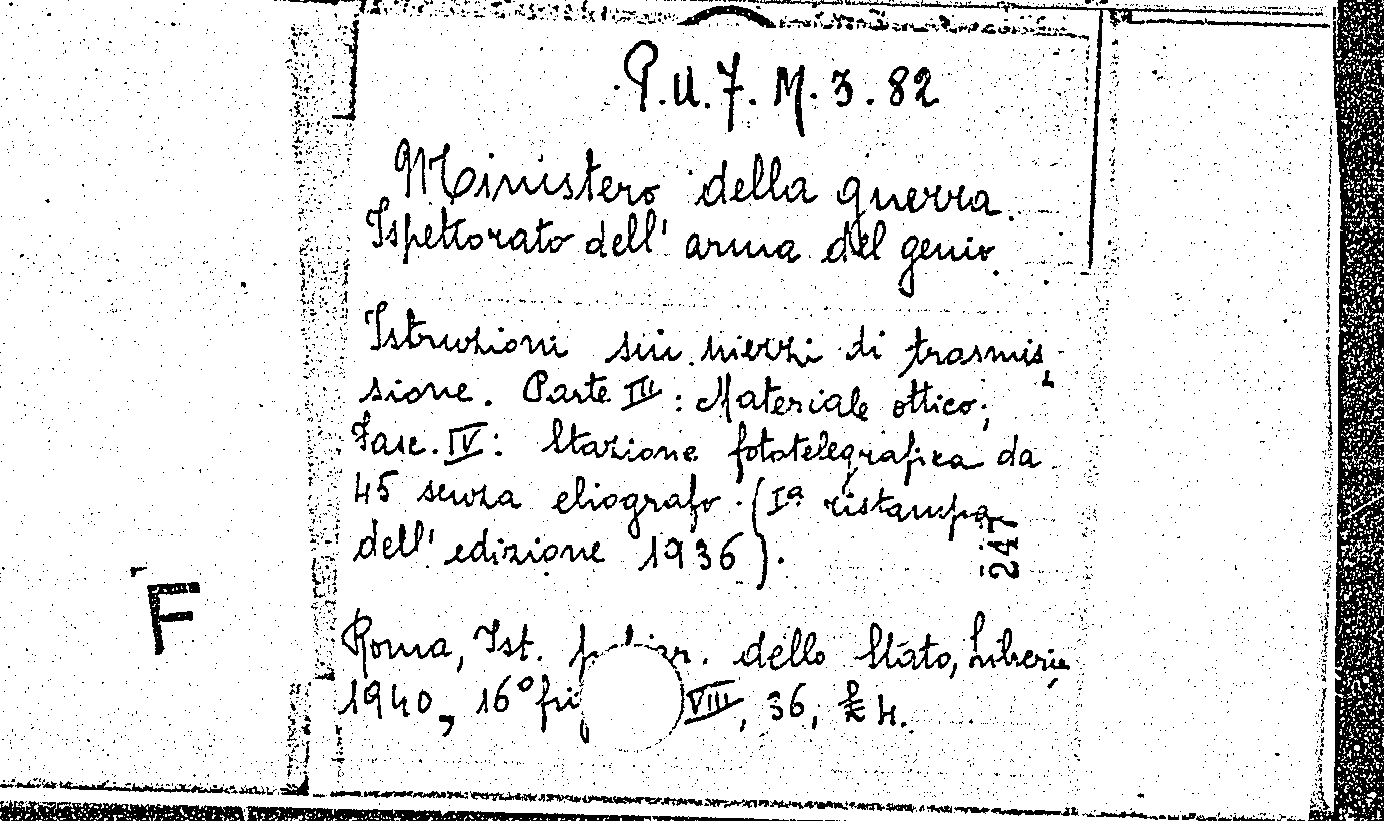 P.U.7.M.3.82
Ministero della guerra.
Ispettorato dell'arma del genio.
Istruzioni sui mezzi di trasmis
sione. Parte III: Materiale ottico;
Fasc. IV: Stazione fototelegrafica da
45 senza eliografo (Iª ristampa
dell'edizione 1936).
247
F
Roma, Ist. dello Stato, Libreria
1940, 16° VIII, 36, £ 4.